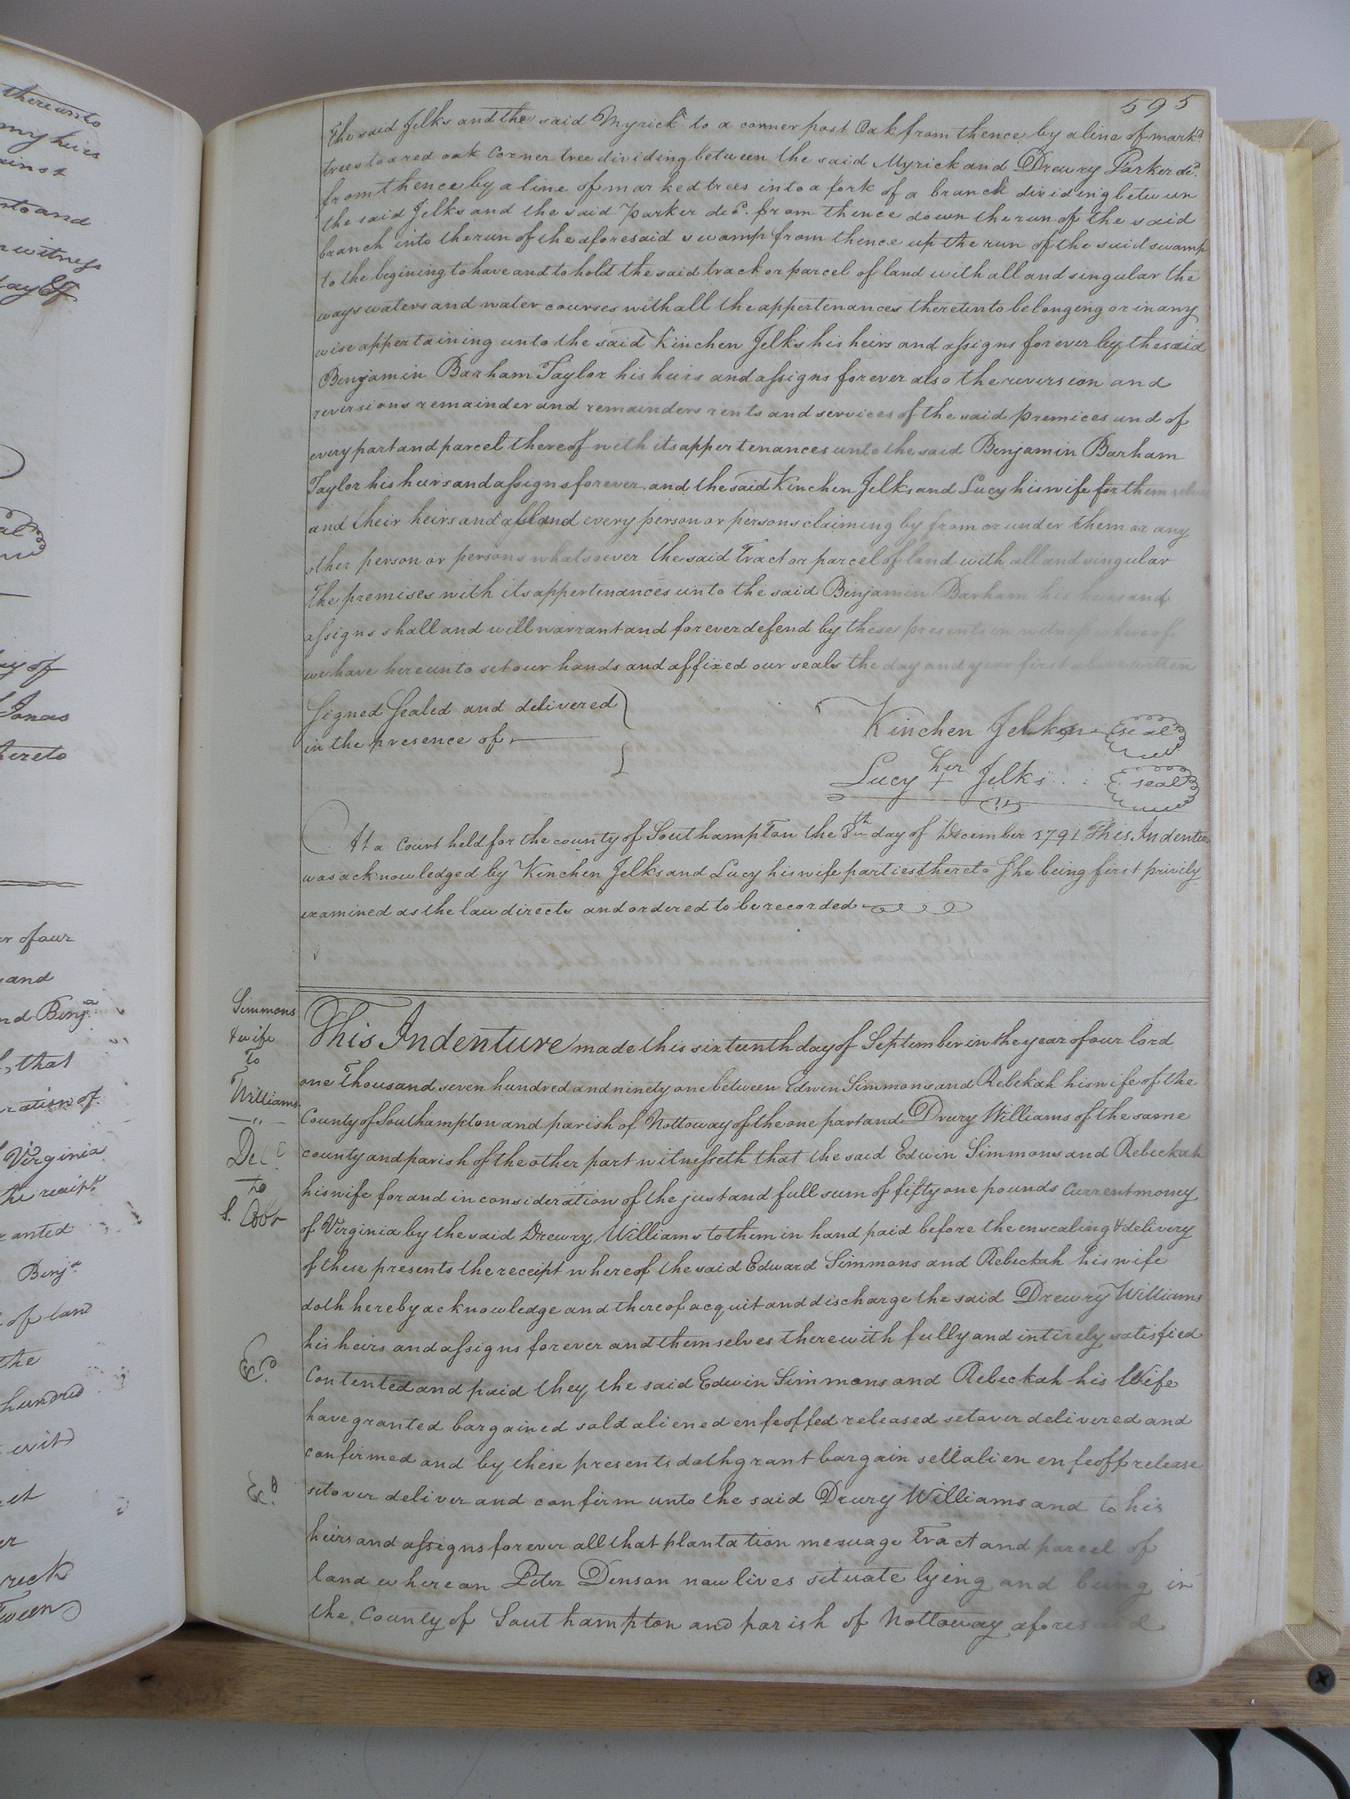 595
the said Jelks and the said Myrick to a corner post Oak from thence by a line of mark.d
trees to a red oak Corner tree dividing between the said Myrick and Drewry Parker de.d
from thence by a line of marked trees into a fork of a branch dividing between
the said Jelks and the said Parker de.d from thence down the run of the said
branch into the run of the aforesaid swamp from thence up the run of the said swamp
to the begining to have and to hold the said track or parcel of land with all and singular the
ways waters and water courses with all the appertenances thereunto belonging or in any
wise appertaining unto the said Kinchen Jelks his heirs and assigns forever by the said
Benjamin Barham Taylor his heirs and assigns forever also the reversion and
reversions remainder and remainders rents and services of the said premices and of
every part and parcel thereof with its appertenances unto the said Benjamin Barham
Taylor his heirs and assigns forever and the said Kinchen Jelks and Lucy his wife for them
and their heirs and all and every person or persons claiming by from or under them or any
other person or persons whatsoever the said Tract or parcel of land with all and singular
The premises with its appertenances unto the said Benjamin Barham his heirs and
assigns shall and will warrant and forever defend by these presents in witness whereof
we have hereunto set our hands and affixed our seals the day and year first above written
Signed Sealed and delivered
in the presence of
Kinchen Jelks seal
Lucy her + Jelks seal
At a Court held for the county of Southampton the 8th day of December 1791 This Indenture
was acknowledged by Kinchen Jelks and Lucy his wife parties thereto She being first privily
examined as the law directs and ordered to be recorded
Simmons
& wife
To
Williams
De.d
to
S. Coor
Ex.d
Ex.d
This Indenture made this sixteenth day of September in the year of our lord
one Thousand seven hundred and ninety one between Edwin Simmons and Rebekah his wife of the
County of Southampton and parish of Nottoway of the one part and Drury Williams of the same
county and parish of the other part witnesseth that the said Edwin Simmons and Rebeckah
his wife for and in consideration of the just and full sum of fifty one pounds Current money
of Virginia by the said Drewry Williams to them in hand paid before the ensealing & delivery
of these presents the receipt whereof the said Edward Simmons and Rebeckah his wife
doth hereby acknowledge and thereof acquit and discharge the said Drewry Williams
his heirs and assigns forever and themselves therewith fully and intirely satisfied
Contented and paid they the said Edwin Simmons and Rebeckah his Wife
have granted bargained sold aliened enfeoffed released set over delivered and
confirmed and by these presents doth grant bargain sell alien enfeoff release
set over deliver and confirm unto the said Drury Williams and to his
heirs and assigns forever all that plantation mesuage Tract and parcel of
land whereon Peter Denson now lives situate lying and being in
the County of Southampton and parish of Nottoway aforesaid